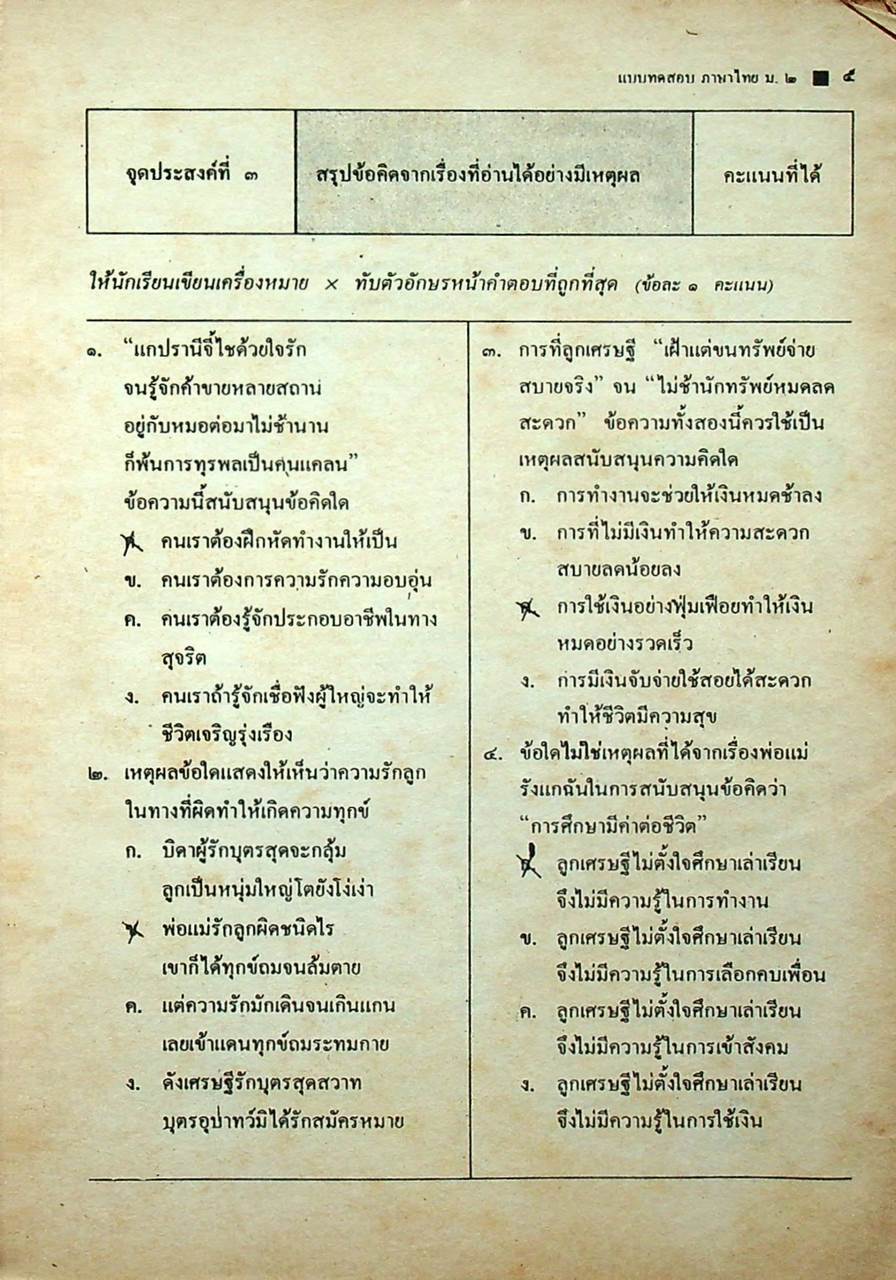 แบบทดสอบ ภาษาไทย ม. ๒ ■ ๕
จุดประสงค์ที่ ๓
สรุปข้อคิดจากเรื่องที่อ่านได้อย่างมีเหตุผล
คะแนนที่ได้
ให้นักเรียนเขียนเครื่องหมาย × ทับตัวอักษรหน้าคำตอบที่ถูกที่สุด (ข้อละ ๑ คะแนน)
๑. “แกปรานีจี้ไชด้วยใจรัก
จนรู้จักค้าขายหลายสถาน
อยู่กับหมอต่อมาไม่ช้านาน
ก็พ้นการทุรพลเป็นคนแคลน”
ข้อความนี้สนับสนุนข้อคิดใด
คนเราต้องฝึกหัดทำงานให้เป็น
ข. คนเราต้องการความรักความอบอุ่น
ค. คนเราต้องรู้จักประกอบอาชีพในทาง
สุจริต
ง. คนเราถ้ารู้จักเชื่อฟังผู้ใหญ่จะทำให้
ชีวิตเจริญรุ่งเรือง
๒. เหตุผลข้อใดแสดงให้เห็นว่าความรักลูก
ในทางที่ผิดทำให้เกิดความทุกข์
ก. บิดาผู้รักบุตรสุดจะกลุ้ม
ลูกเป็นหนุ่มใหญ่โตยังโง่เง่า
พ่อแม่รักลูกผิดชนิดไร
เขาก็ได้ทุกข์ถมจนล้มตาย
ค. แต่ความรักมักเดินจนเกินแกน
เลยเข้าแดนทุกข์ถมระทมกาย
ง. ดังเศรษฐีรักบุตรสุดสวาท
บุตรอุปาทว์มิได้รักสมัครหมาย
๓. การที่ลูกเศรษฐี “เฝ้าแต่ขนทรัพย์จ่าย
สบายจริง” จน “ไม่ช้านักทรัพย์หมดลด
สะดวก” ข้อความทั้งสองนี้ควรใช้เป็น
เหตุผลสนับสนุนความคิดใด
ก. การทำงานจะช่วยให้เงินหมดช้าลง
ข. การที่ไม่มีเงินทำให้ความสะดวก
สบายลดน้อยลง
การใช้เงินอย่างฟุ่มเฟือยทำให้เงิน
หมดอย่างรวดเร็ว
ง. การมีเงินจับจ่ายใช้สอยได้สะดวก
ทำให้ชีวิตมีความสุข
๔. ข้อใดไม่ใช่เหตุผลที่ได้จากเรื่องพ่อแม่
รังแกฉันในการสนับสนุนข้อคิดว่า
“การศึกษามีค่าต่อชีวิต”
ลูกเศรษฐีไม่ตั้งใจศึกษาเล่าเรียน
จึงไม่มีความรู้ในการทำงาน
ข. ลูกเศรษฐีไม่ตั้งใจศึกษาเล่าเรียน
จึงไม่มีความรู้ในการเลือกคบเพื่อน
ค. ลูกเศรษฐีไม่ตั้งใจศึกษาเล่าเรียน
จึงไม่มีความรู้ในการเข้าสังคม
ง. ลูกเศรษฐีไม่ตั้งใจศึกษาเล่าเรียน
จึงไม่มีความรู้ในการใช้เงิน